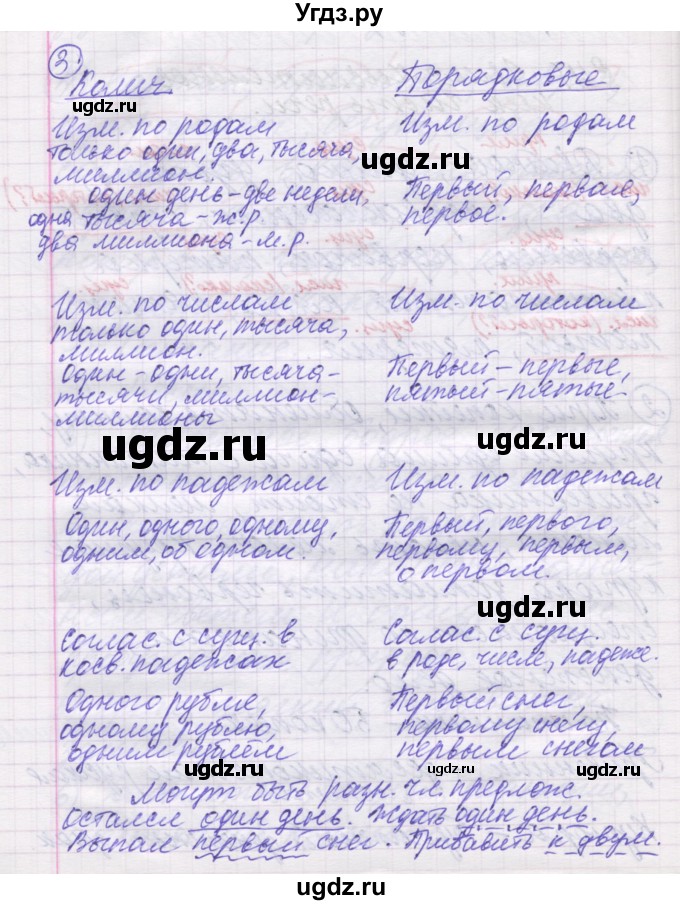 Угдз.ру
3.
Колич.
Изм. по родам
только один, два, тысяча,
миллион.
один день - две недели,
одна тысяча - ж.р.
два миллиона - м.р.
Изм. по числам
только один, тысяча,
миллион.
Один - одни, тысяча -
тысячи, миллион -
миллионы
Изм. по падежам
Один, одного, одному,
одним, об одном.
Соглас. с сущ. в
косв. падежах
Одного рубля,
одному рублю,
одним рублём
Порядковые
Изм. по родам
Первый, первая,
первое.
Изм. по числам
Первый - первые,
пятый - пятые.
Изм. по падежам
Первый, первого,
первому, первым,
о первом.
Соглас. с сущ.
в роде, числе, падеже.
Первый снег,
первому снегу,
первым снегом
Могут быть разн. чл. предлож.
Остался один день. Ждать один день.
Выпал первый снег. Прибавить к двум.
ugdz.ru
ugdz.ru
ugdz.ru
ugdz.ru
ugdz.ru
ugdz.ru
ugdz.ru
ugdz.ru
ugdz.ru
ugdz.ru
ugdz.ru